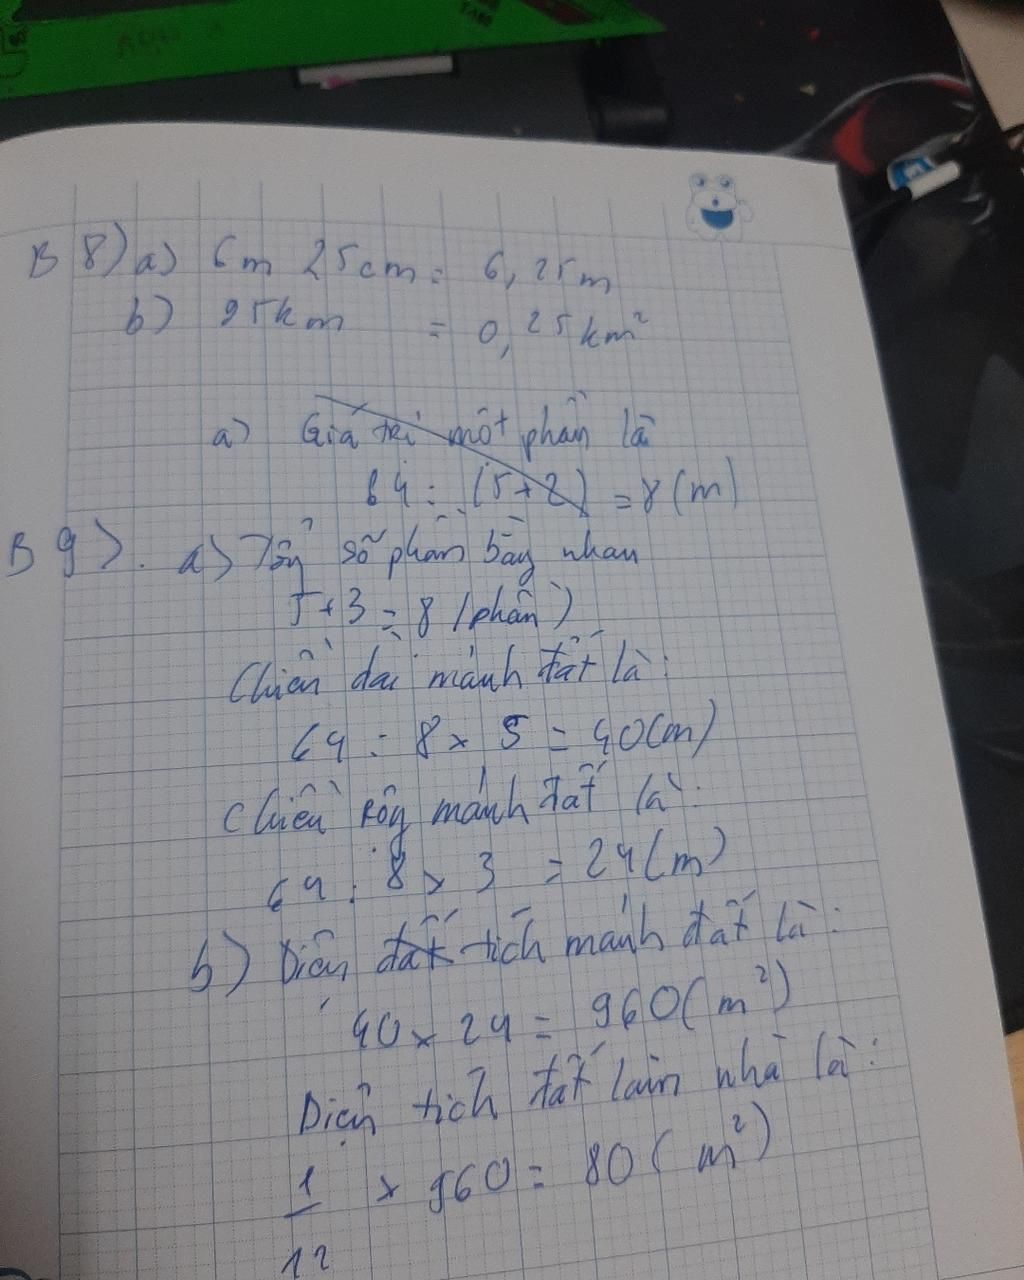 B 8) a) 6m 25cm = 6,25m
b) 25km = 0,25km²
a) Giá trị một phần là
64 : (5+2) = 8 (m)
B 9). a) Tổng số phần bằng nhau
5+3 = 8 (phần)
Chiều dài mảnh đất là:
64 : 8 x 5 = 40(m)
Chiều rộng mảnh đất là:
64 : 8 x 3 = 24(m)
b) Diện đất tích mảnh đất là:
40 x 24 = 960(m²)
Diện tích đất làm nhà là:
1/12 x 960 = 80(m²)